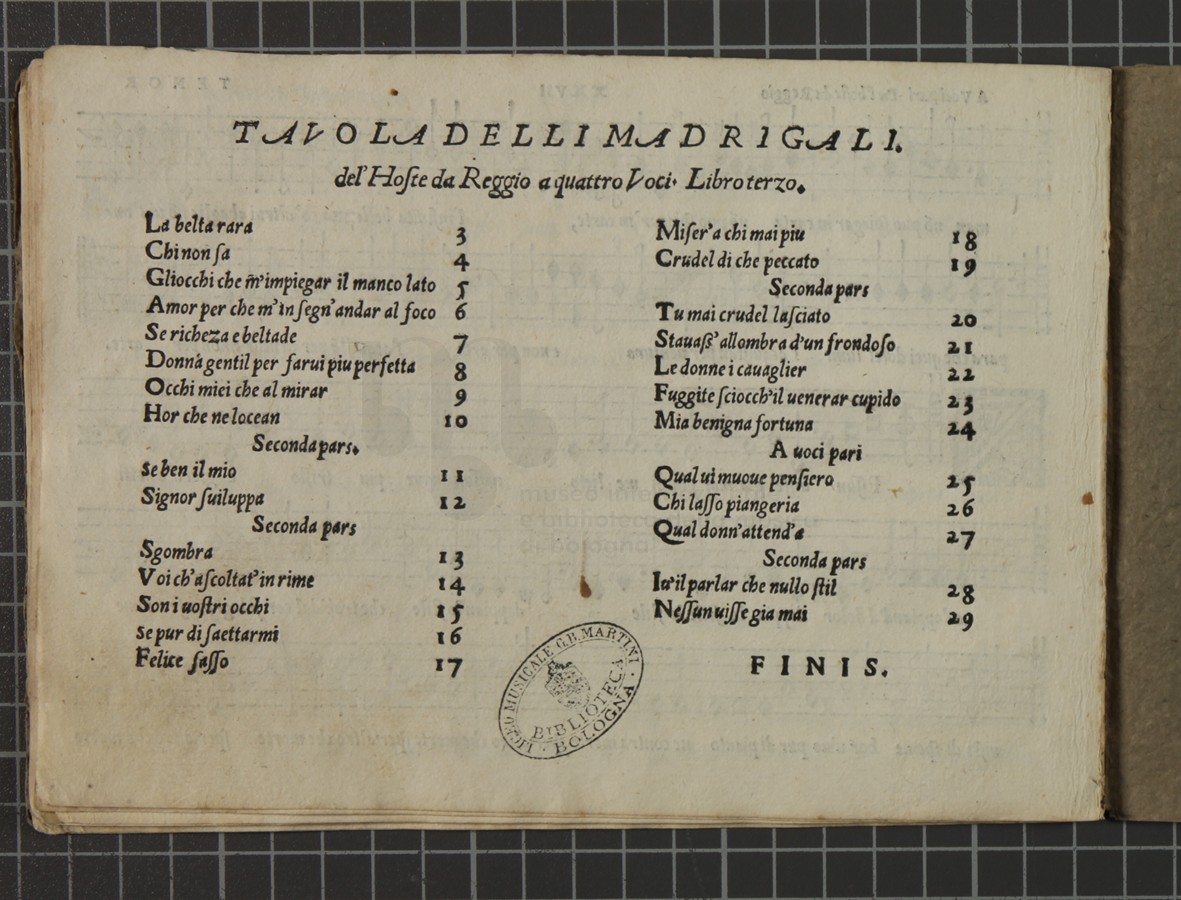 TAVOLA DELLI MADRIGALI.
del' Hoste da Reggio a quattro Voci. Libro terzo.
La belta rara 3
Chi non sa 4
Gliocchi che m̃'impiegar il manco lato 5
Amor per che m'insegn'andar al foco 6
Se richeza e beltade 7
Donna gentil per farui piu perfetta 8
Occhi miei che al mirar 9
Hor che ne locean 10
Seconda pars.
se ben il mio 11
Signor suiluppa 12
Seconda pars
Sgombra 13
Voi ch'ascoltat'in rime 14
Son i uostri occhi 15
se pur di saettarmi 16
Felice sasso 17
Miser'a chi mai piu 18
Crudel di che peccato 19
Seconda pars
Tu mai crudel lasciato 20
Stauass'allombra d'un frondoso 21
Le donne i cauaglier 22
Fuggite sciocch'il uenerar cupido 23
Mia benigna fortuna 24
A uoci pari
Qual ui muoue pensiero 25
Chi lasso piangeria 26
Qual donn'attend'a 27
Seconda pars
Iu'il parlar che nullo stil 28
Nessun uisse gia mai 29
FINIS.
LICEO MUSICALE G.B. MARTINI
BIBLIOTECA
BOLOGNA
museo
e biblioteca
di bologna
TENOR
XXVII